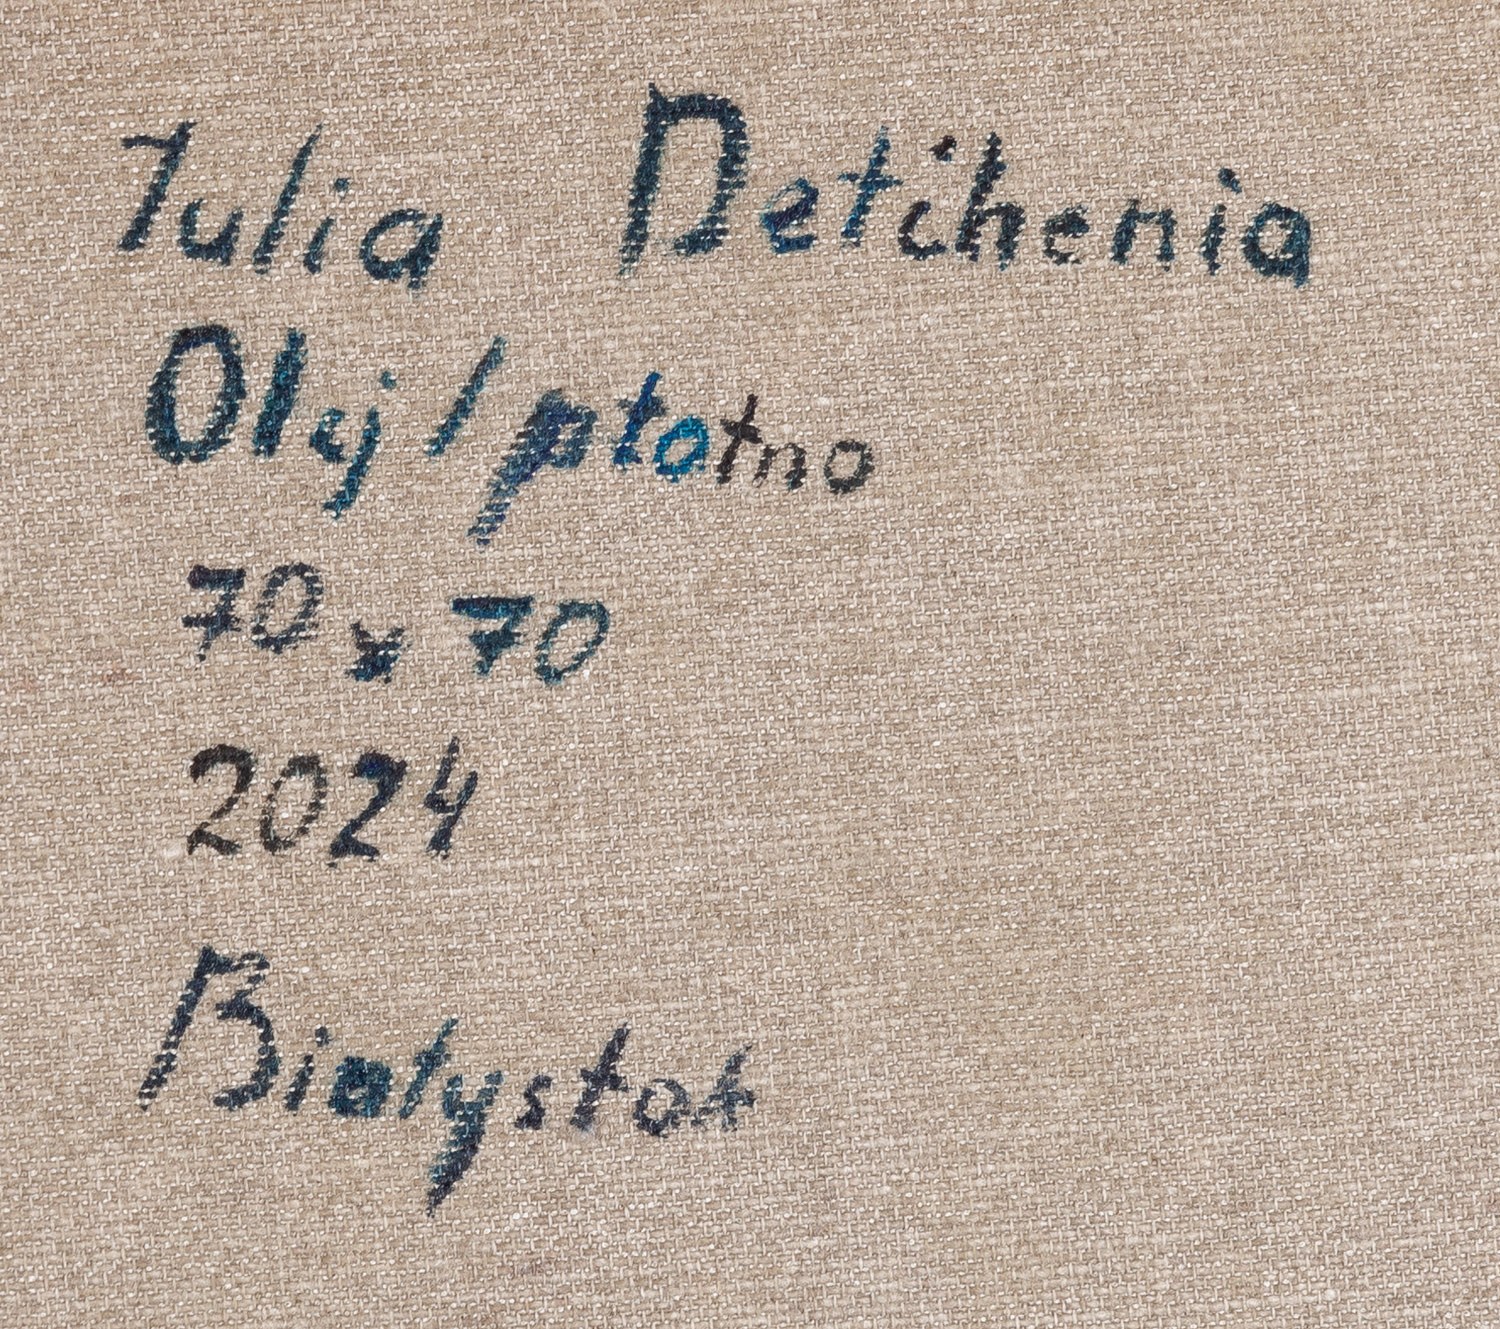 Iulia Detchenia
Olej/płotno
70 x 70
2024
Białystok